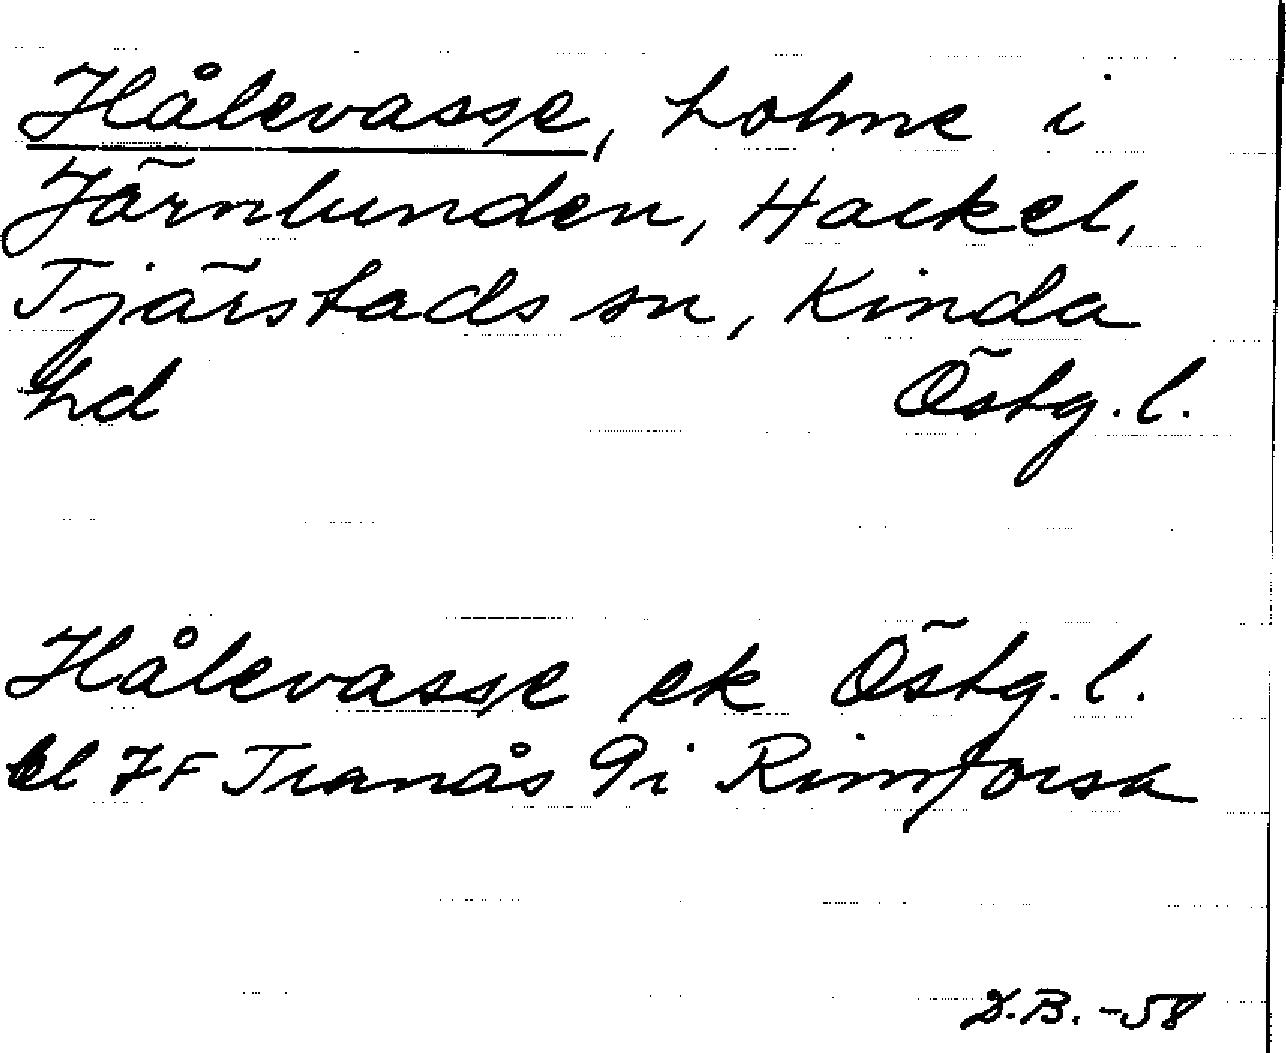 Hålevasse, holme i
Järnlunden, Hackel,
Tjärstads sn, Kinda
hd Östg. l.
Hålevasse ek Östg. l.
bl 7F Tranås 9i Rimforsa
D.B. -58